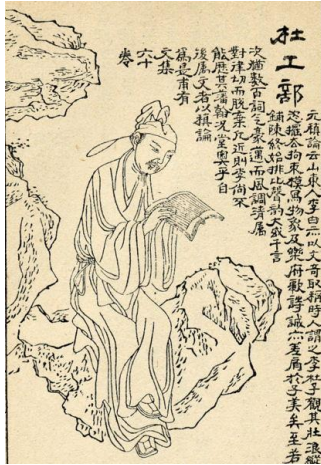 杜工部
元稹論云山東人李白亦以文奇取稱時人謂之李杜予觀其壯浪縱
恣擺去拘束模寫物象及樂府歌詩誠亦差肩於子美矣至若
鋪陳終始排比聲韻大或千言
次猶數百詞氣豪邁而風調清屬
對律切而脫棄凡近則李尚不
能歷其藩翰況堂奧乎自
後屬文者以稹論
為是甫有
文集
六十
卷